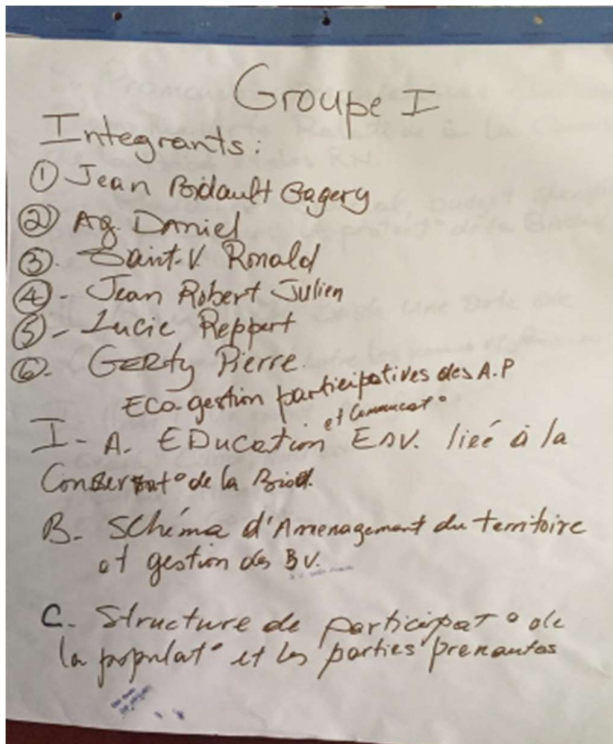 Groupe I
Integrants:
① Jean Bidault Gagery
② Ag. Daniel
③. Saint-V. Ronald
④- Jean Robert Julien
⑤- Lucie Reppert
⑥. GERty Pierre
Eco-gestion participatives des A.P
et Communicat°
I- A. EDucation Env. lieé à la
Conservat° de la Biod.
B- Schéma d'Amenagement du territoire
et gestion des BV.
C. Structure de participat° de
la populat° et les parties prenantes